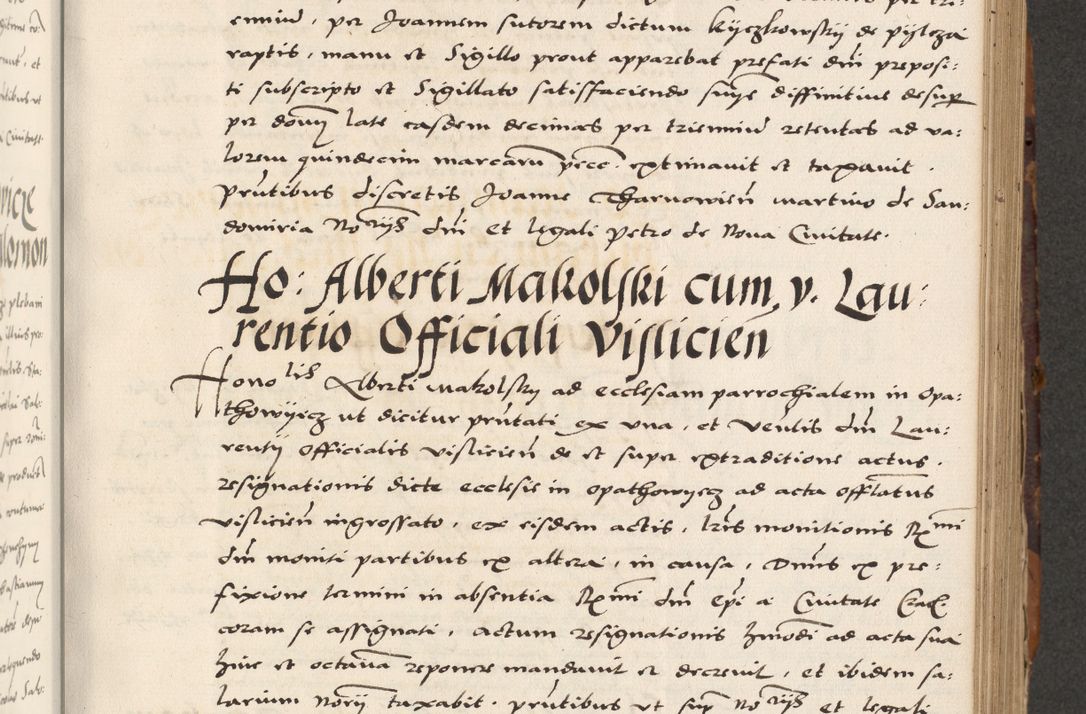 enniu, per Joannem sutorem dictum kÿczkowskÿ de pÿlcza
raptis, manu et Sigillo prout apparebat prefati dni preposi:
ti subscripto et Sigillato satisfaciendo diffinitiue desup
per late easdem decimas per trienniu retentas ad va:
lorem quindecim marcaru pecc. extimauit et taxauit.
Prntibus discretis Joanne Tharnowien martino de San:
domiria Norijs dni et legali Petro de Noua Ciuitate.
Ho: Alberti Makolski cum v. Lau:
rentio Officiali Vislicien
Honolis Alberti makolsky ad ecclesiam parrochialem in opa:
thowÿecz ut dicitur prntati ex vna, et Venlis dni Lau:
rentij Officialis vislicien de et super extraditione actus
resignationis dicte ecclesie in opathowÿecz ad acta offlatus
vislicien ingrossato, ex eisdem actis, lris monitionis Rmi
dni moniti partibus ex altera, in causa, Dnus ex pre:
fixione termini in absentia Rmi dni Epi a Ciuitate Crac.
coram se assignati, actum resignationis hmodi ad acta sua
hinc et octaua reponere mandauit et decreuit, et ibidem sa:
larium Norij taxabit. prntibus vt sup Norijs et legali